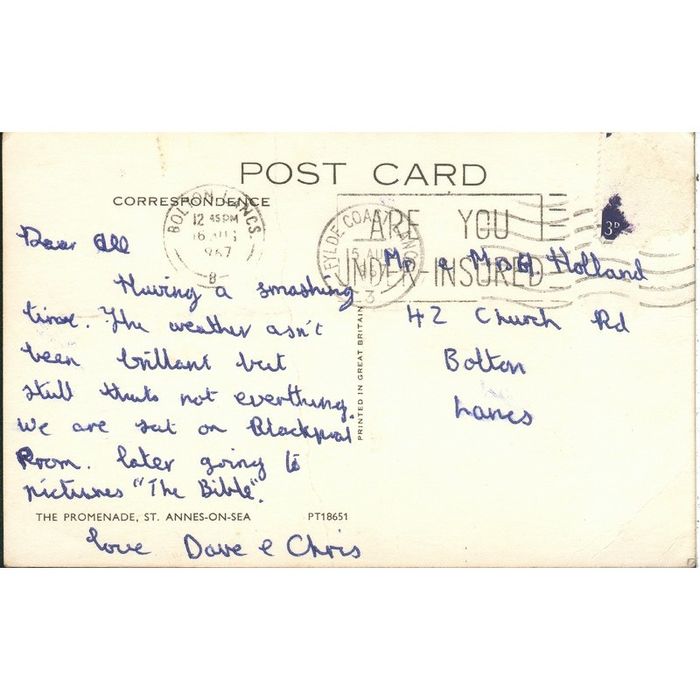 POST CARD
CORRESPONDENCE
BOLTON LANCS.
12 45 PM
16 AUG
1967
B
FYLDE COAST LANCS
15 AUG
3
ARE YOU
UNDER-INSURED
3D
Dear All
Having a smashing
time. The weather asn't
been brillant but
still thats not everthing.
We are sat on Blackpool
Prom. later going to
pictures "The Bible".
love Dave & Chris
Mr & Mrs H. Holland
42 Church Rd
Bolton
Lancs
PRINTED IN GREAT BRITAIN
THE PROMENADE, ST. ANNES-ON-SEA PT18651